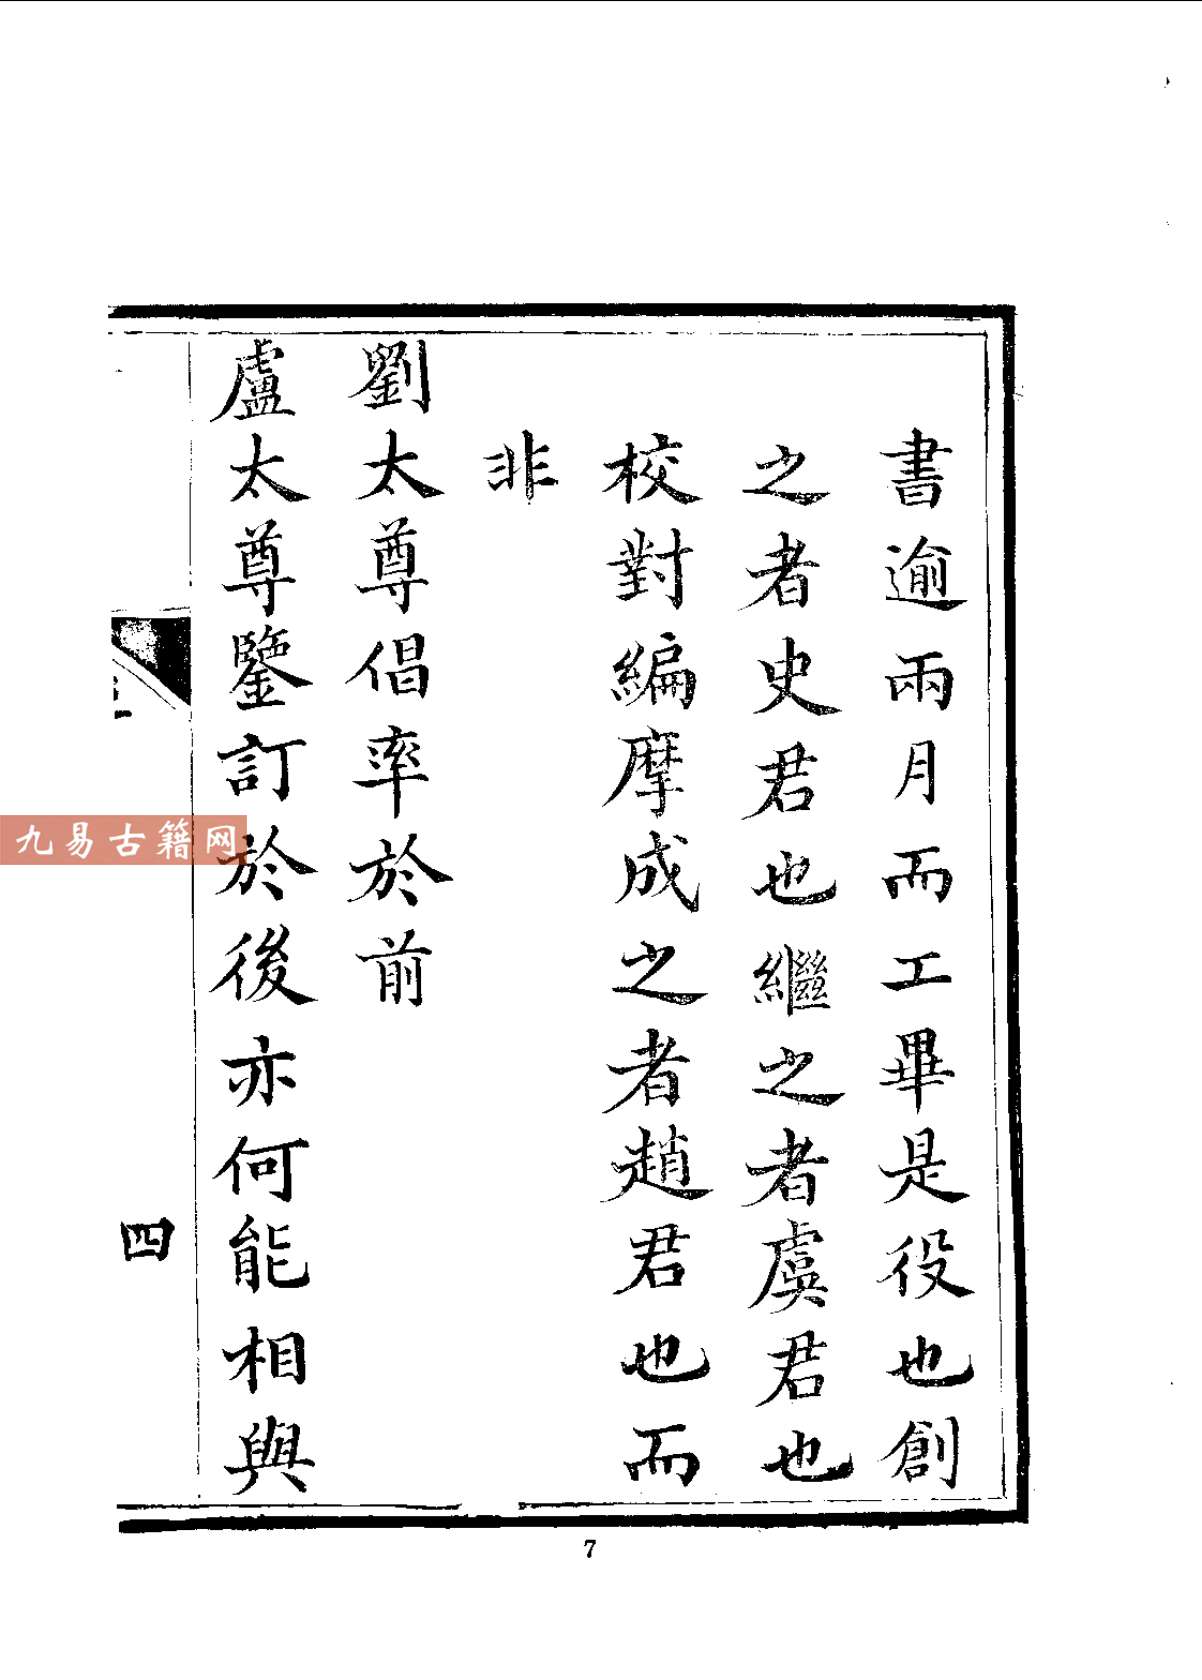 書逾兩月而工畢是役也創
之者史君也繼之者虞君也
校對編摩成之者趙君也而
非
劉太尊倡率於前
盧太尊鑒訂於後亦何能相與
四
九易古籍网
7